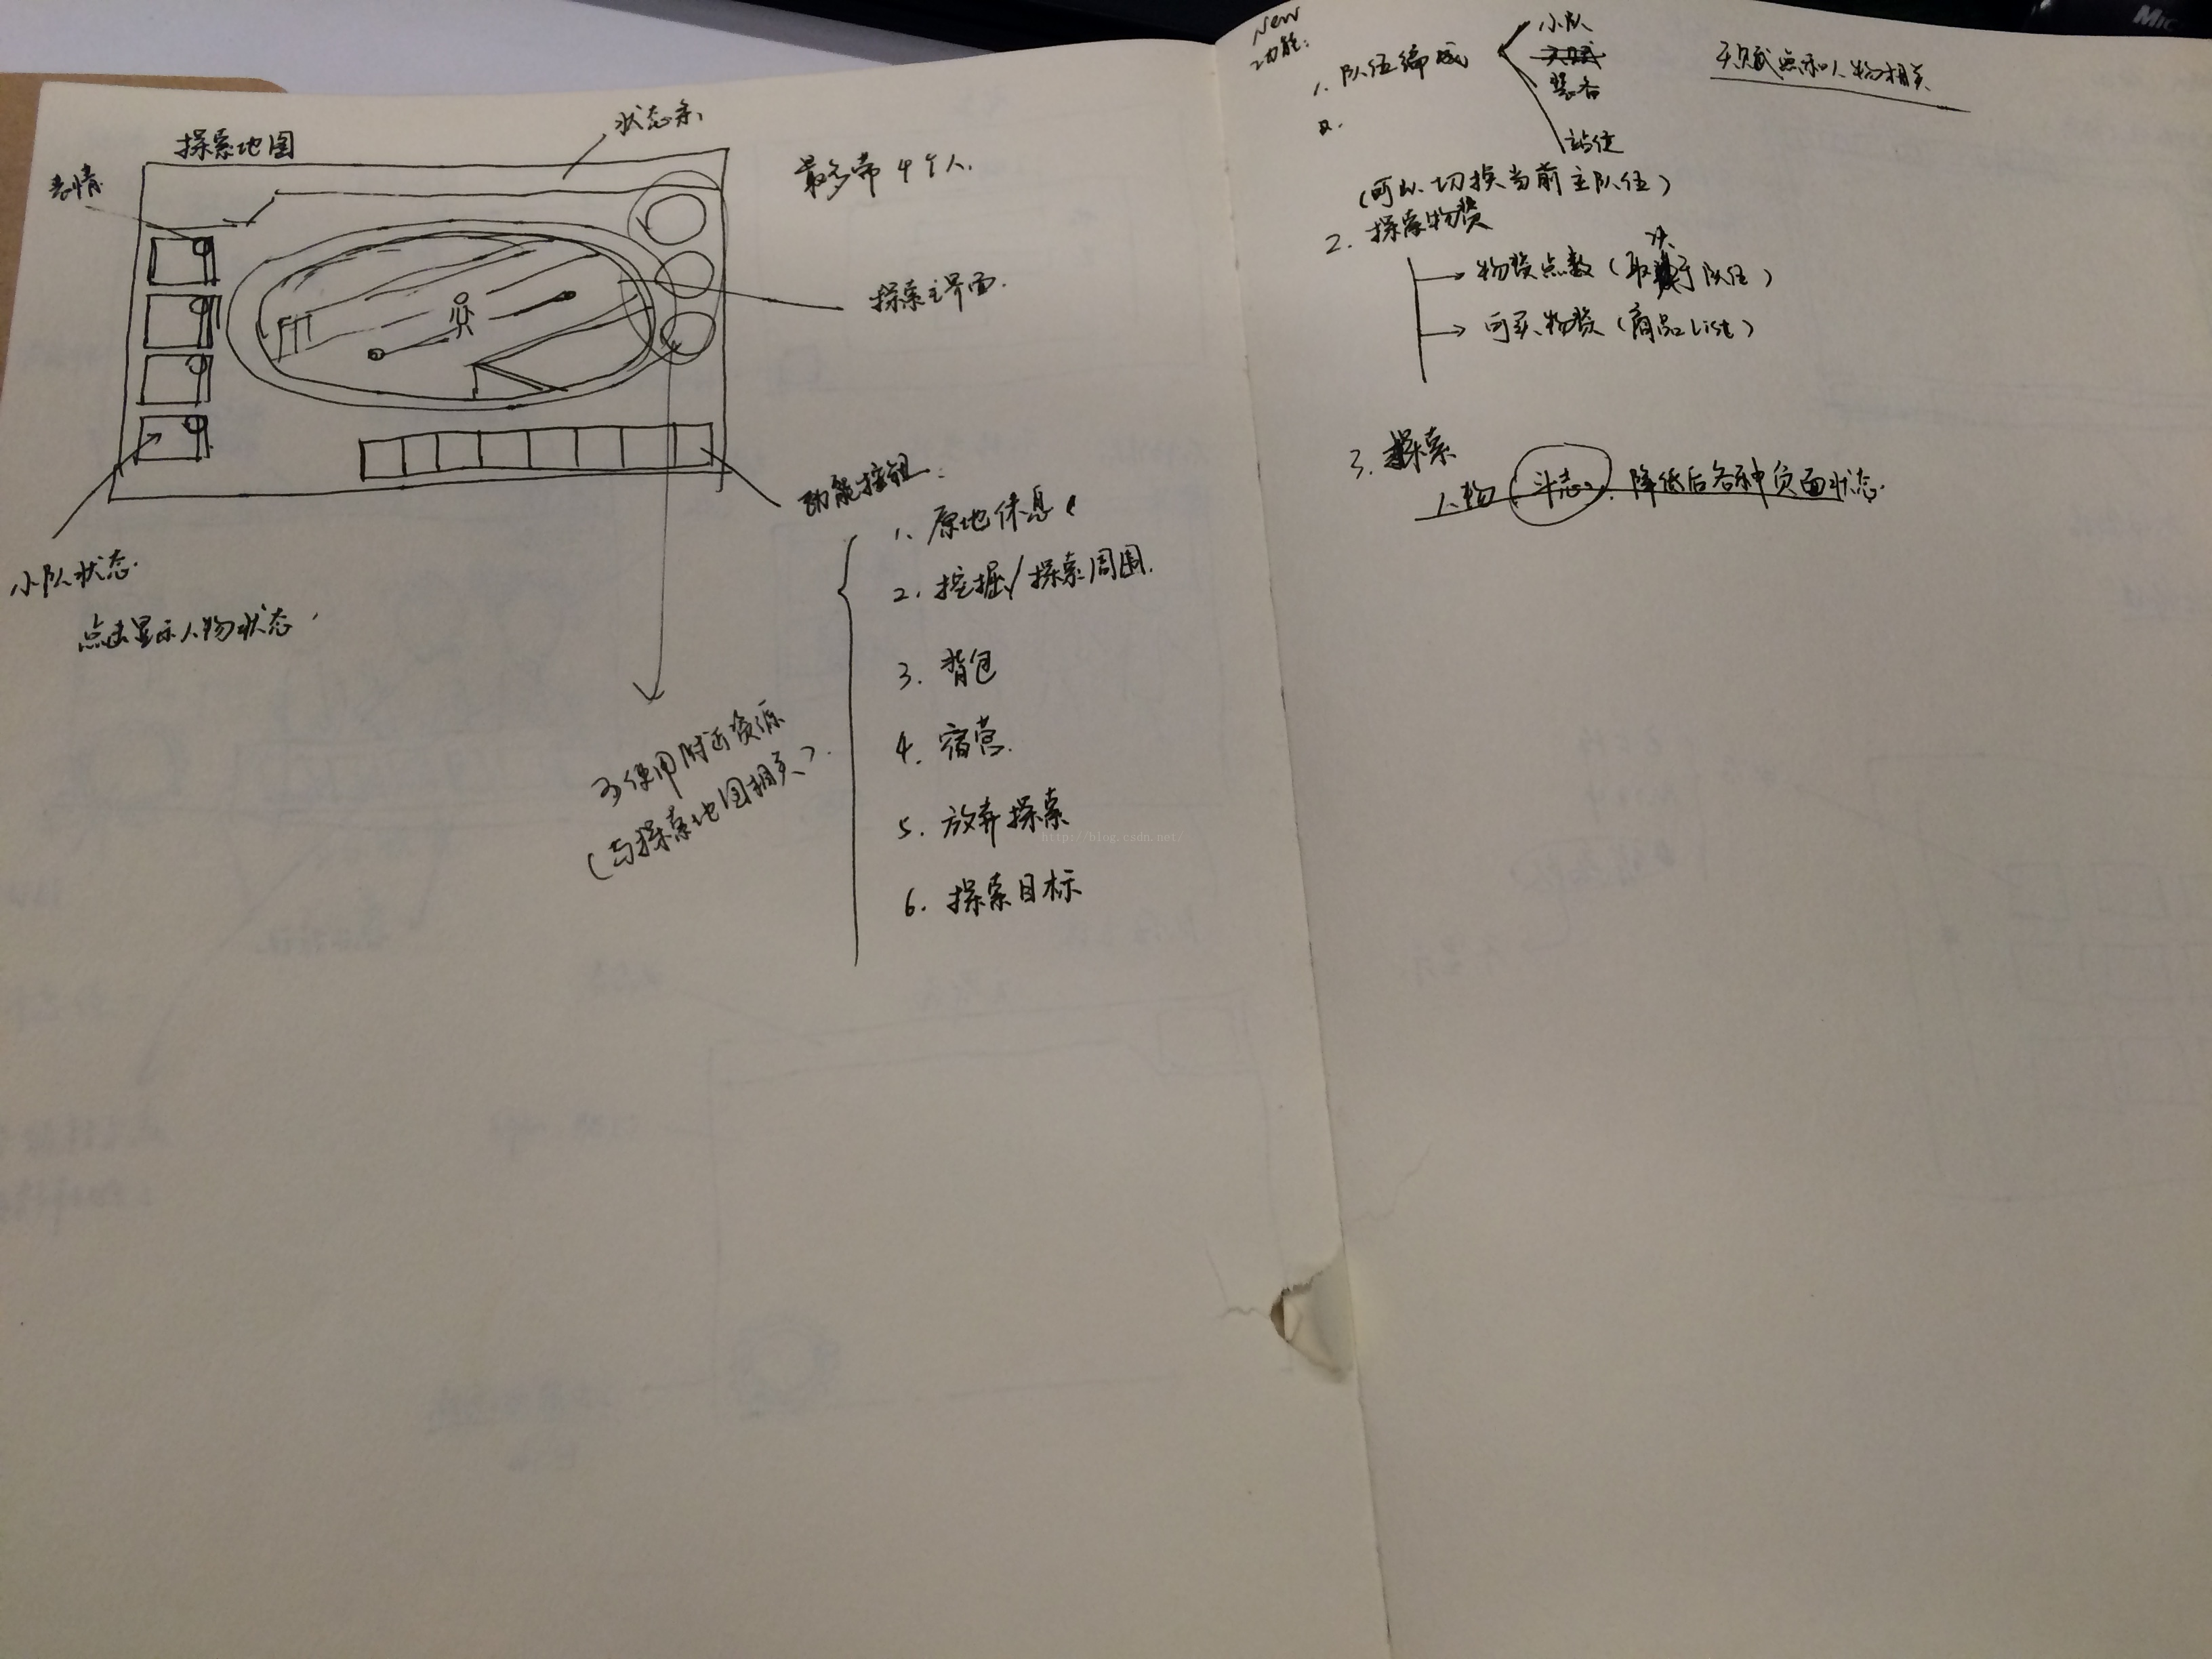 探索地图
状态条
表情
最多带4个人.
探索主界面.
功能按钮:
1. 原地休息
2. 挖掘/探索周围.
3. 背包
4. 宿营.
5. 放弃探索
6. 探索目标
小队状态.
点击显示人物状态.
可使用附近资源
(与探索地图相关).
http://blog.csdn.net/
New
功能:
1. 队伍编成
小队
天赋
装备
站位
天赋点和人物相关
(可以切换当前主队伍)
2. 探索物资
物资点数(取决于队伍)
可买物资(商品List)
3. 探索
人物(斗志). 降低后各种负面状态.
Mic